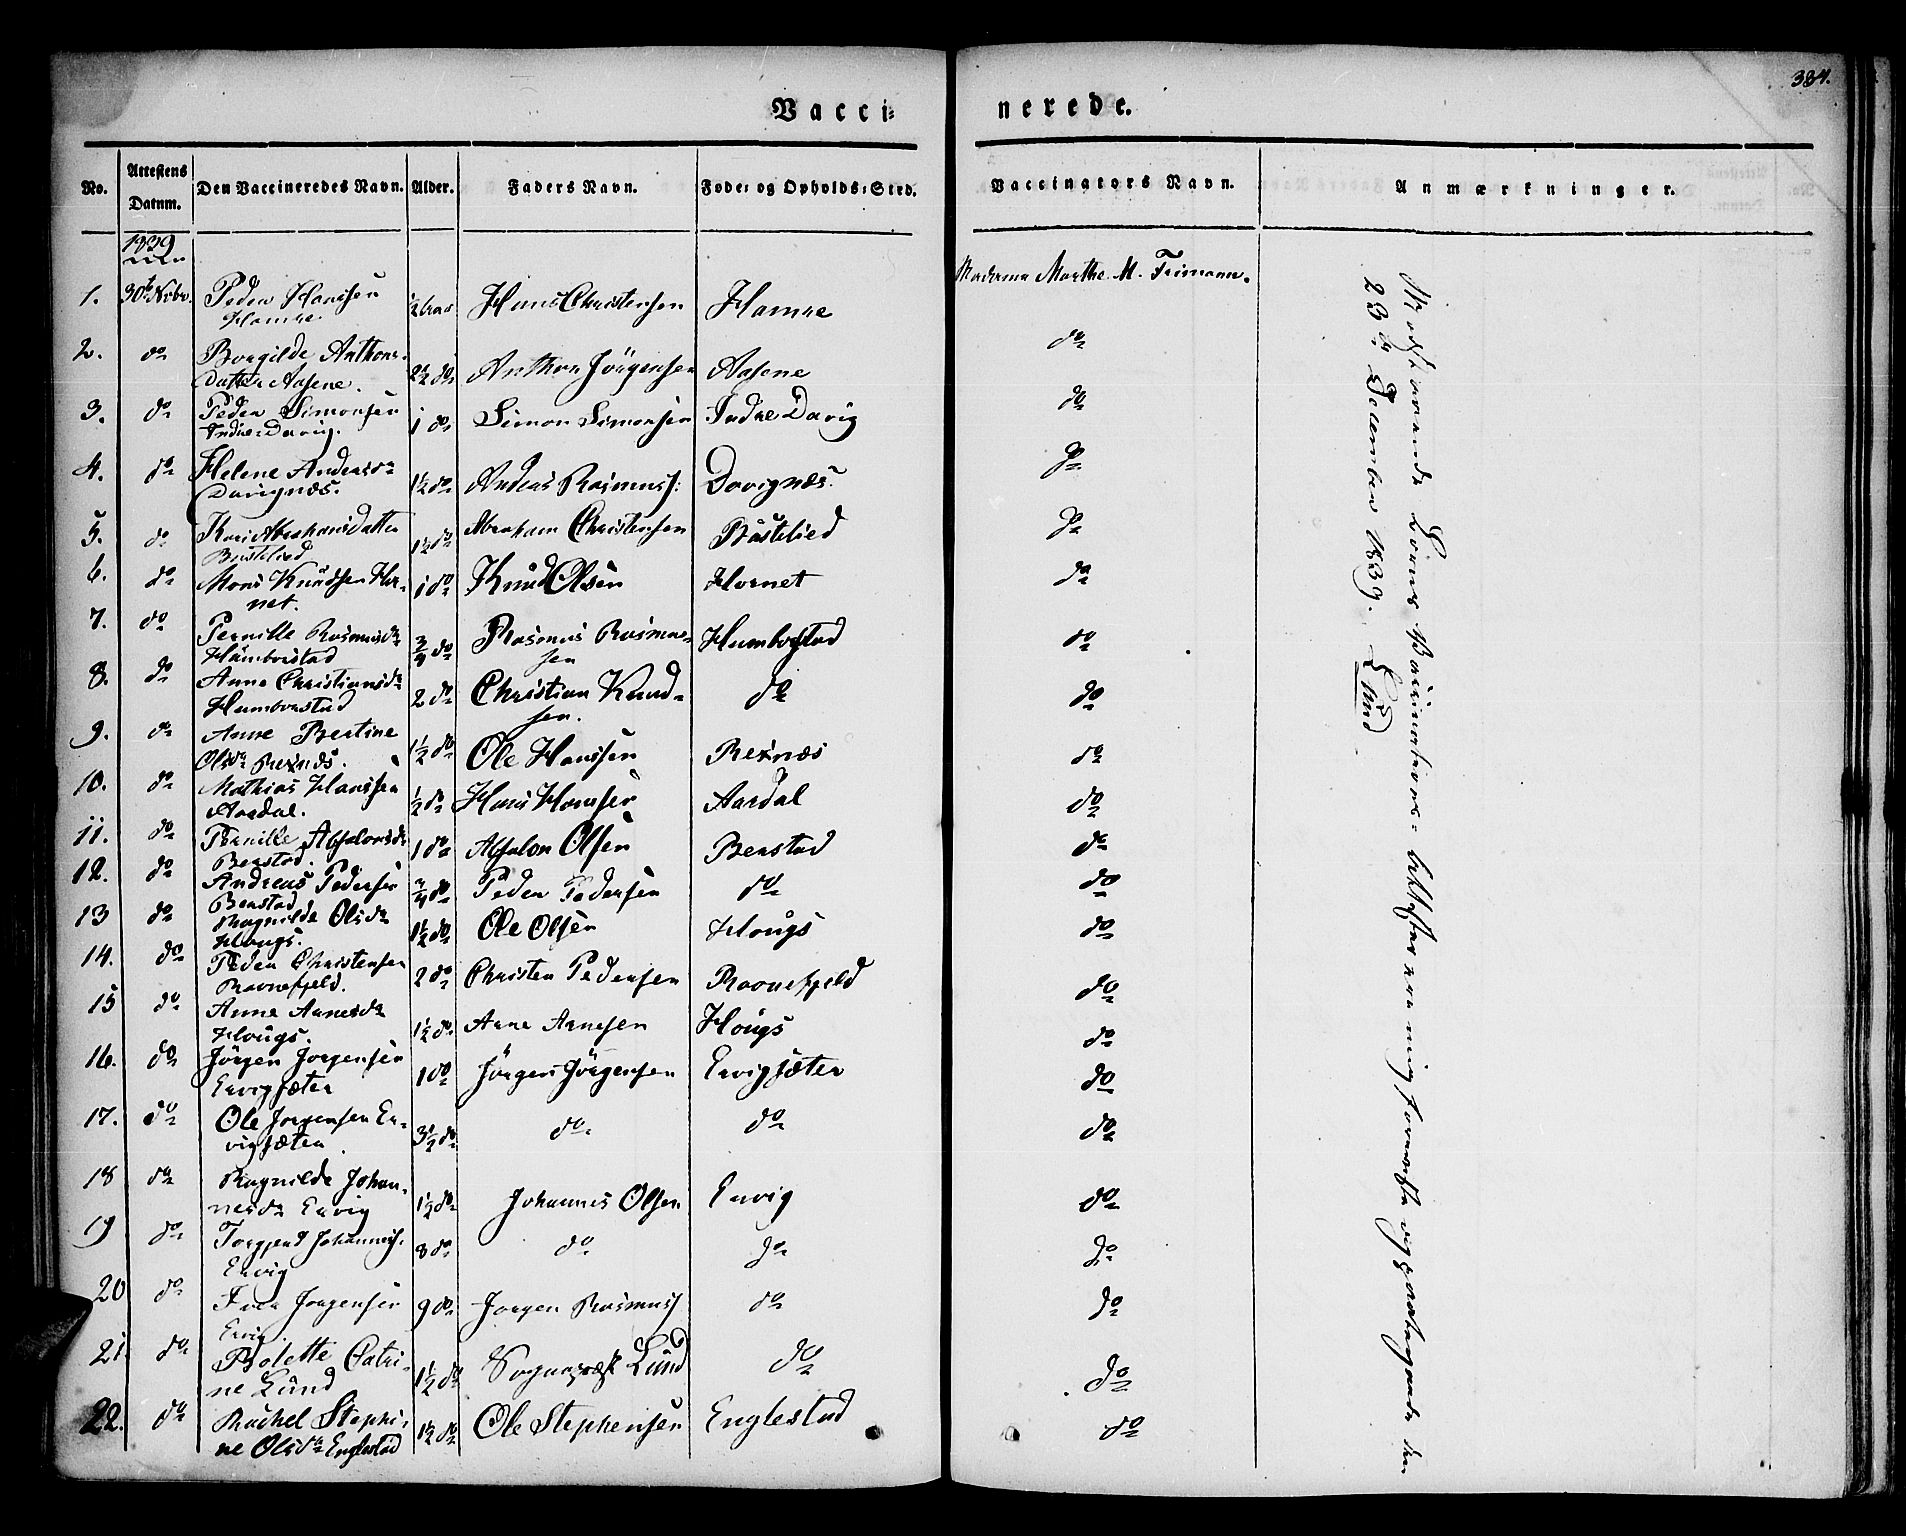 384.
Vacci- nerede.
No. | Attestens Datum. | Den Vaccineredes Navn. | Alder. | Faders Navn. | Føde- og Opholds-Sted. | Vaccinators Navn. | Anmærkninger.
1839
1. | 30te Novbr. | Peder Hanssen Hamre. | ½ Aar | Hans Christensen | Hamre | Madame Marthe M. Frimann.
2. | do | Borgilde Anthons- Datter Aasene. | 2½ do | Anthon Jörgensen | Aasene | do
3. | do | Peder Simonsen Indre-Davig. | 1 do | Simon Simonsen | Indre Davig | do
4. | do | Helene Andersdr Davignæs. | 1½ do | Andreas Rasmuss: | Davignæs. | do
5. | do | Kari Abrahamsdatter | 1½ do | Abraham Christensen | | do
6. | do | Mons Knudsen Hor- net. | 1 do | Knud Olsen | Hornet | do
7. | do | Pernille Rasmusdr Humborstad | ¾ do | Rasmus Rasmus- sen | Humborstad | do
8. | do | Anne Christiansdr Humborstad | 2 do | Christian Knud- sen. | do | do
9. | do | Anne Bertine Olsdr Rexnæs. | 1½ do | Ole Hanssen | Rexnæs | do
10. | do | Mathias Hanssen Aardal. | ½ do | Hans Hanssen | Aardal | do
11. | do | Pernille Absalonsdr Berstad. | 1 do | Absalon Olsen | Berstad | do
12. | do | Andreas Pedersen Berstad | ¾ do | Peder Pedersen | do | do
13 | do | Ragnilde Olsdr Hougs. | 1½ do | Ole Olsen | Hougs | do
14. | do | Peder Christensen Ravnefjeld. | 2 do | Christen Pedersen | Ravnefjeld | do
15 | do | Anne Arnesdr Hougs. | 1½ do | Arne Arnesen | Hougs | do
16. | do | Jörgen Jorgensen Ervigsæter | 1 do | Jörgen Jörgensen | Ervigsæter | do
17. | do | Ole Jorgensen Er- vigsæter | 3½ do | do | do | do
18 | do | Ragnilde Johan- nesdr Ervig | 1½ do | Johannes Olsen | Ervig | do
19 | do | Johanness. Ervig | 8 do | do | do | do
20 | do | Iver Jorgensen Ervig. | 9 do | Jorgen Rasmuss | do | do
21. | do | Bolette Catri- ne Lund | 1½ do | Sognepræst Lund | do | do
22. | do | Rachel Stephi- ne Olsdr Englestad | 1½ do | Ole Stephensen | Englestad | do
Modstaaende Liens Vaccinations- bekræftes mig den
23de December 1839. Lund